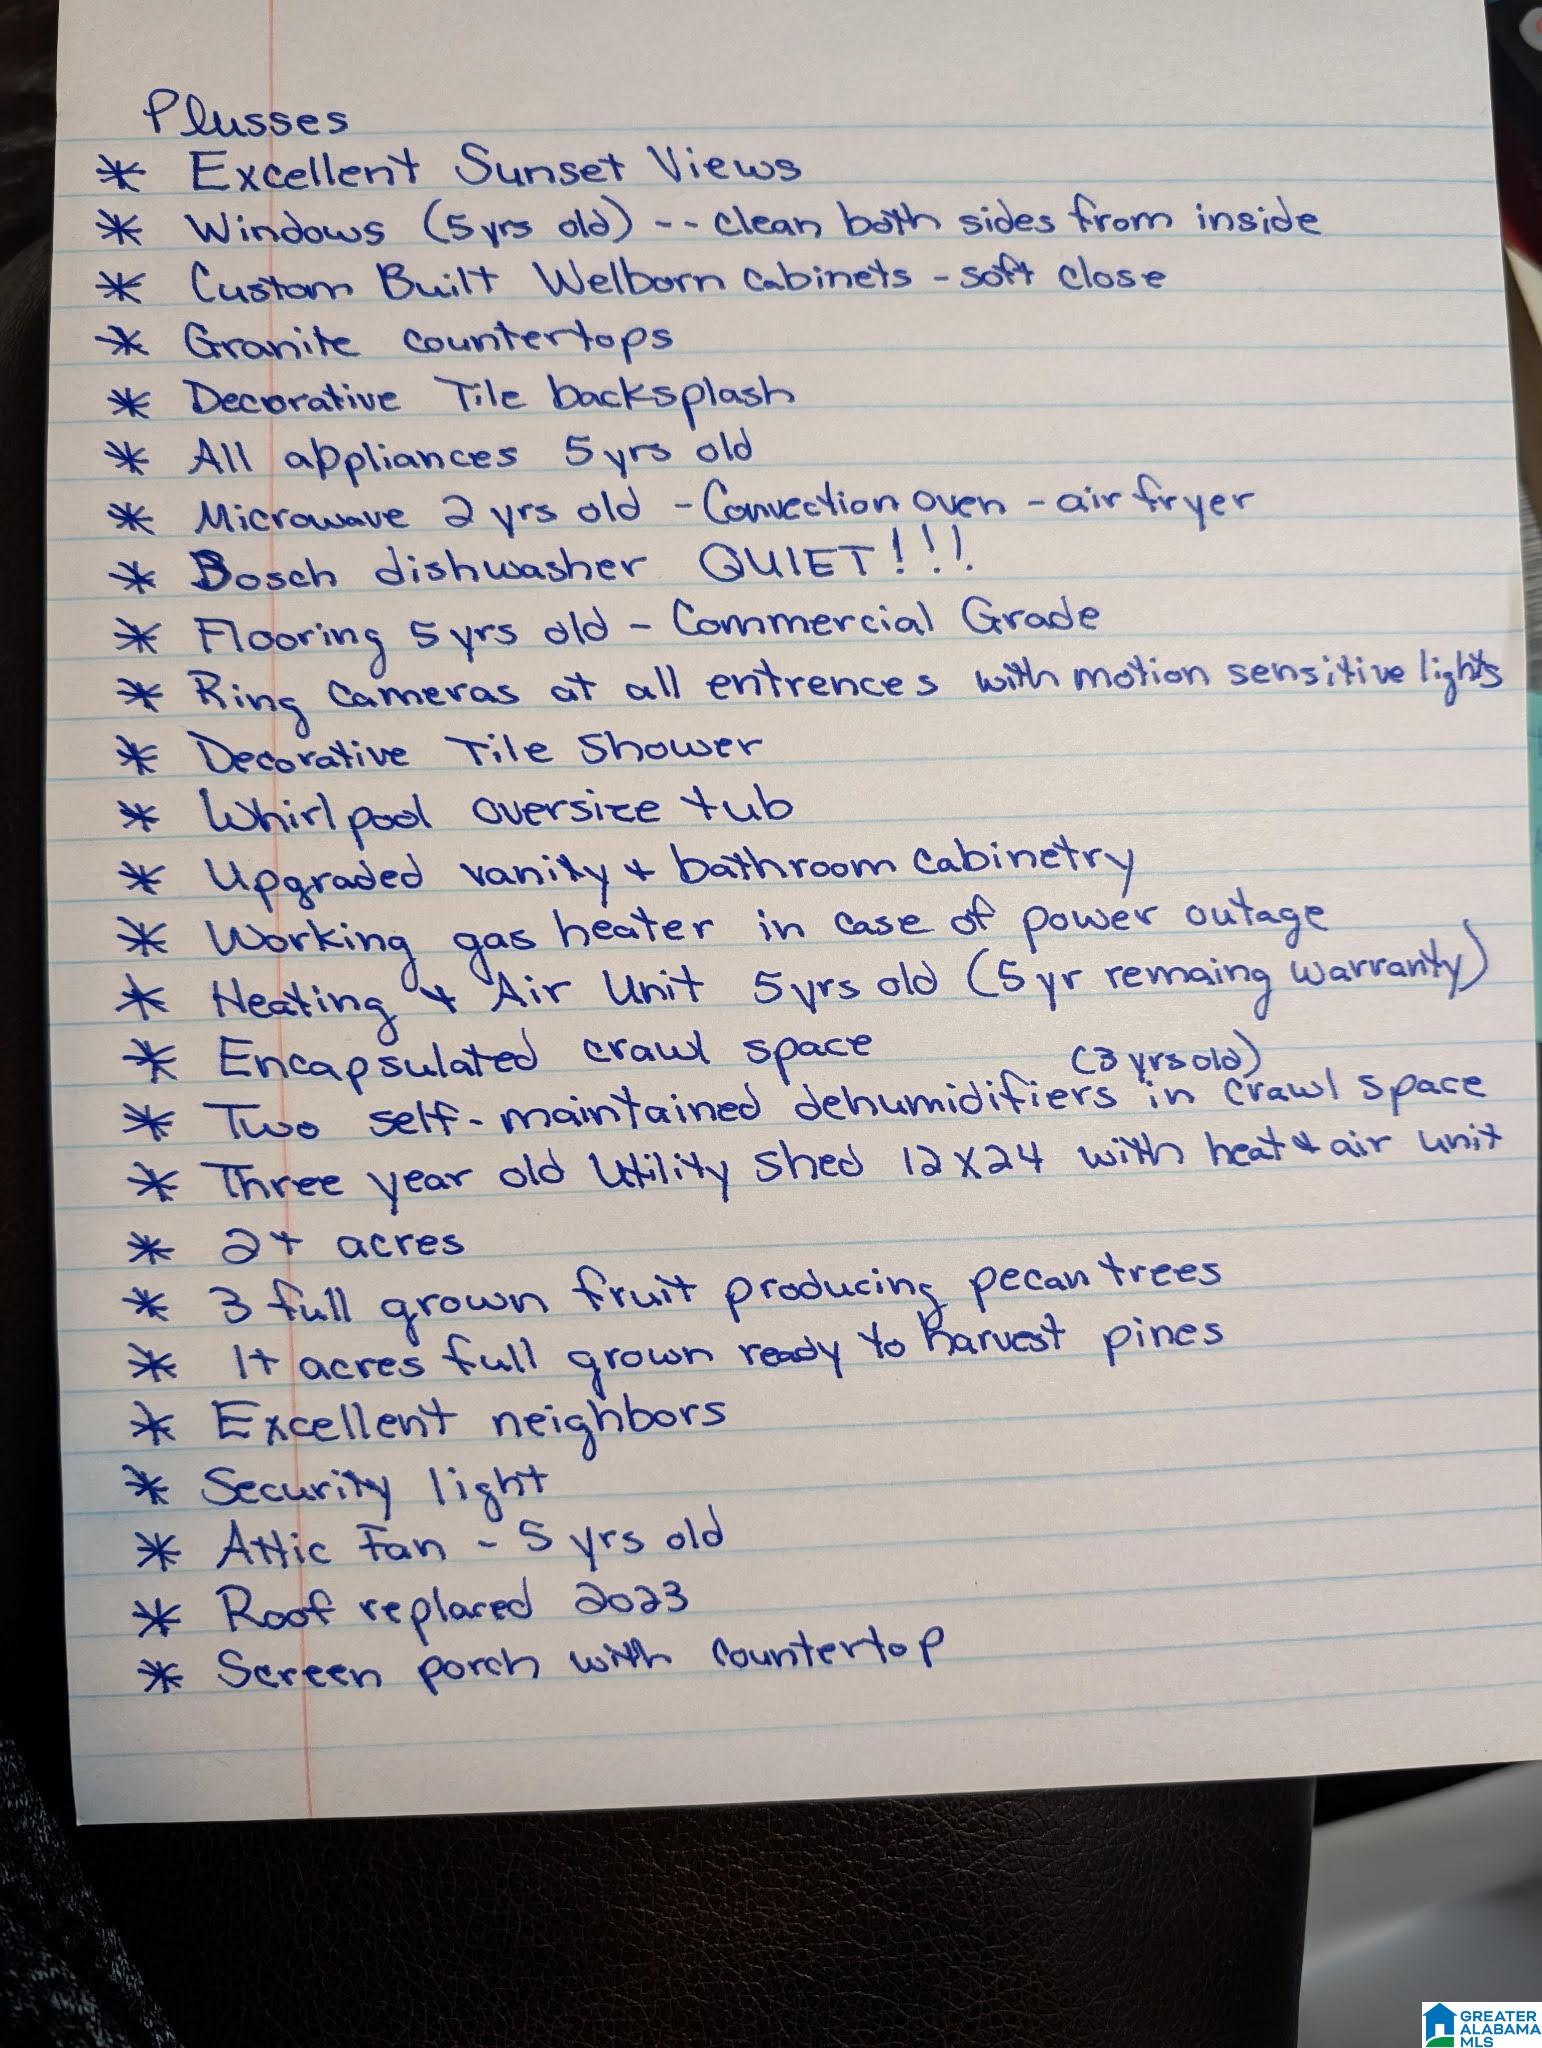 Plusses
* Excellent Sunset Views
* Windows (5 yrs old) -- clean both sides from inside
* Custom Built Welborn cabinets - soft close
* Granite countertops
* Decorative Tile backsplash
* All appliances 5 yrs old
* Microwave 2 yrs old - Convection oven - air fryer
* Bosch dishwasher QUIET!!!
* Flooring 5 yrs old - Commercial Grade
* Ring cameras at all entrences with motion sensitive lights
* Decorative Tile Shower
* Whirlpool oversize tub
* Upgraded vanity + bathroom cabinetry
* Working gas heater in case of power outage
* Heating + Air Unit 5 yrs old (5 yr remaing warranty)
* Encapsulated crawl space
(3 yrs old)
* Two self-maintained dehumidifiers in crawl space
* Three year old Utility Shed 12x24 with heat + air unit
* 2+ acres
* 3 full grown fruit producing pecan trees
* 1+ acres full grown ready to harvest pines
* Excellent neighbors
* Security light
* Attic Fan - 5 yrs old
* Roof replaced 2023
* Screen porch with countertop
GREATER
ALABAMA
MLS